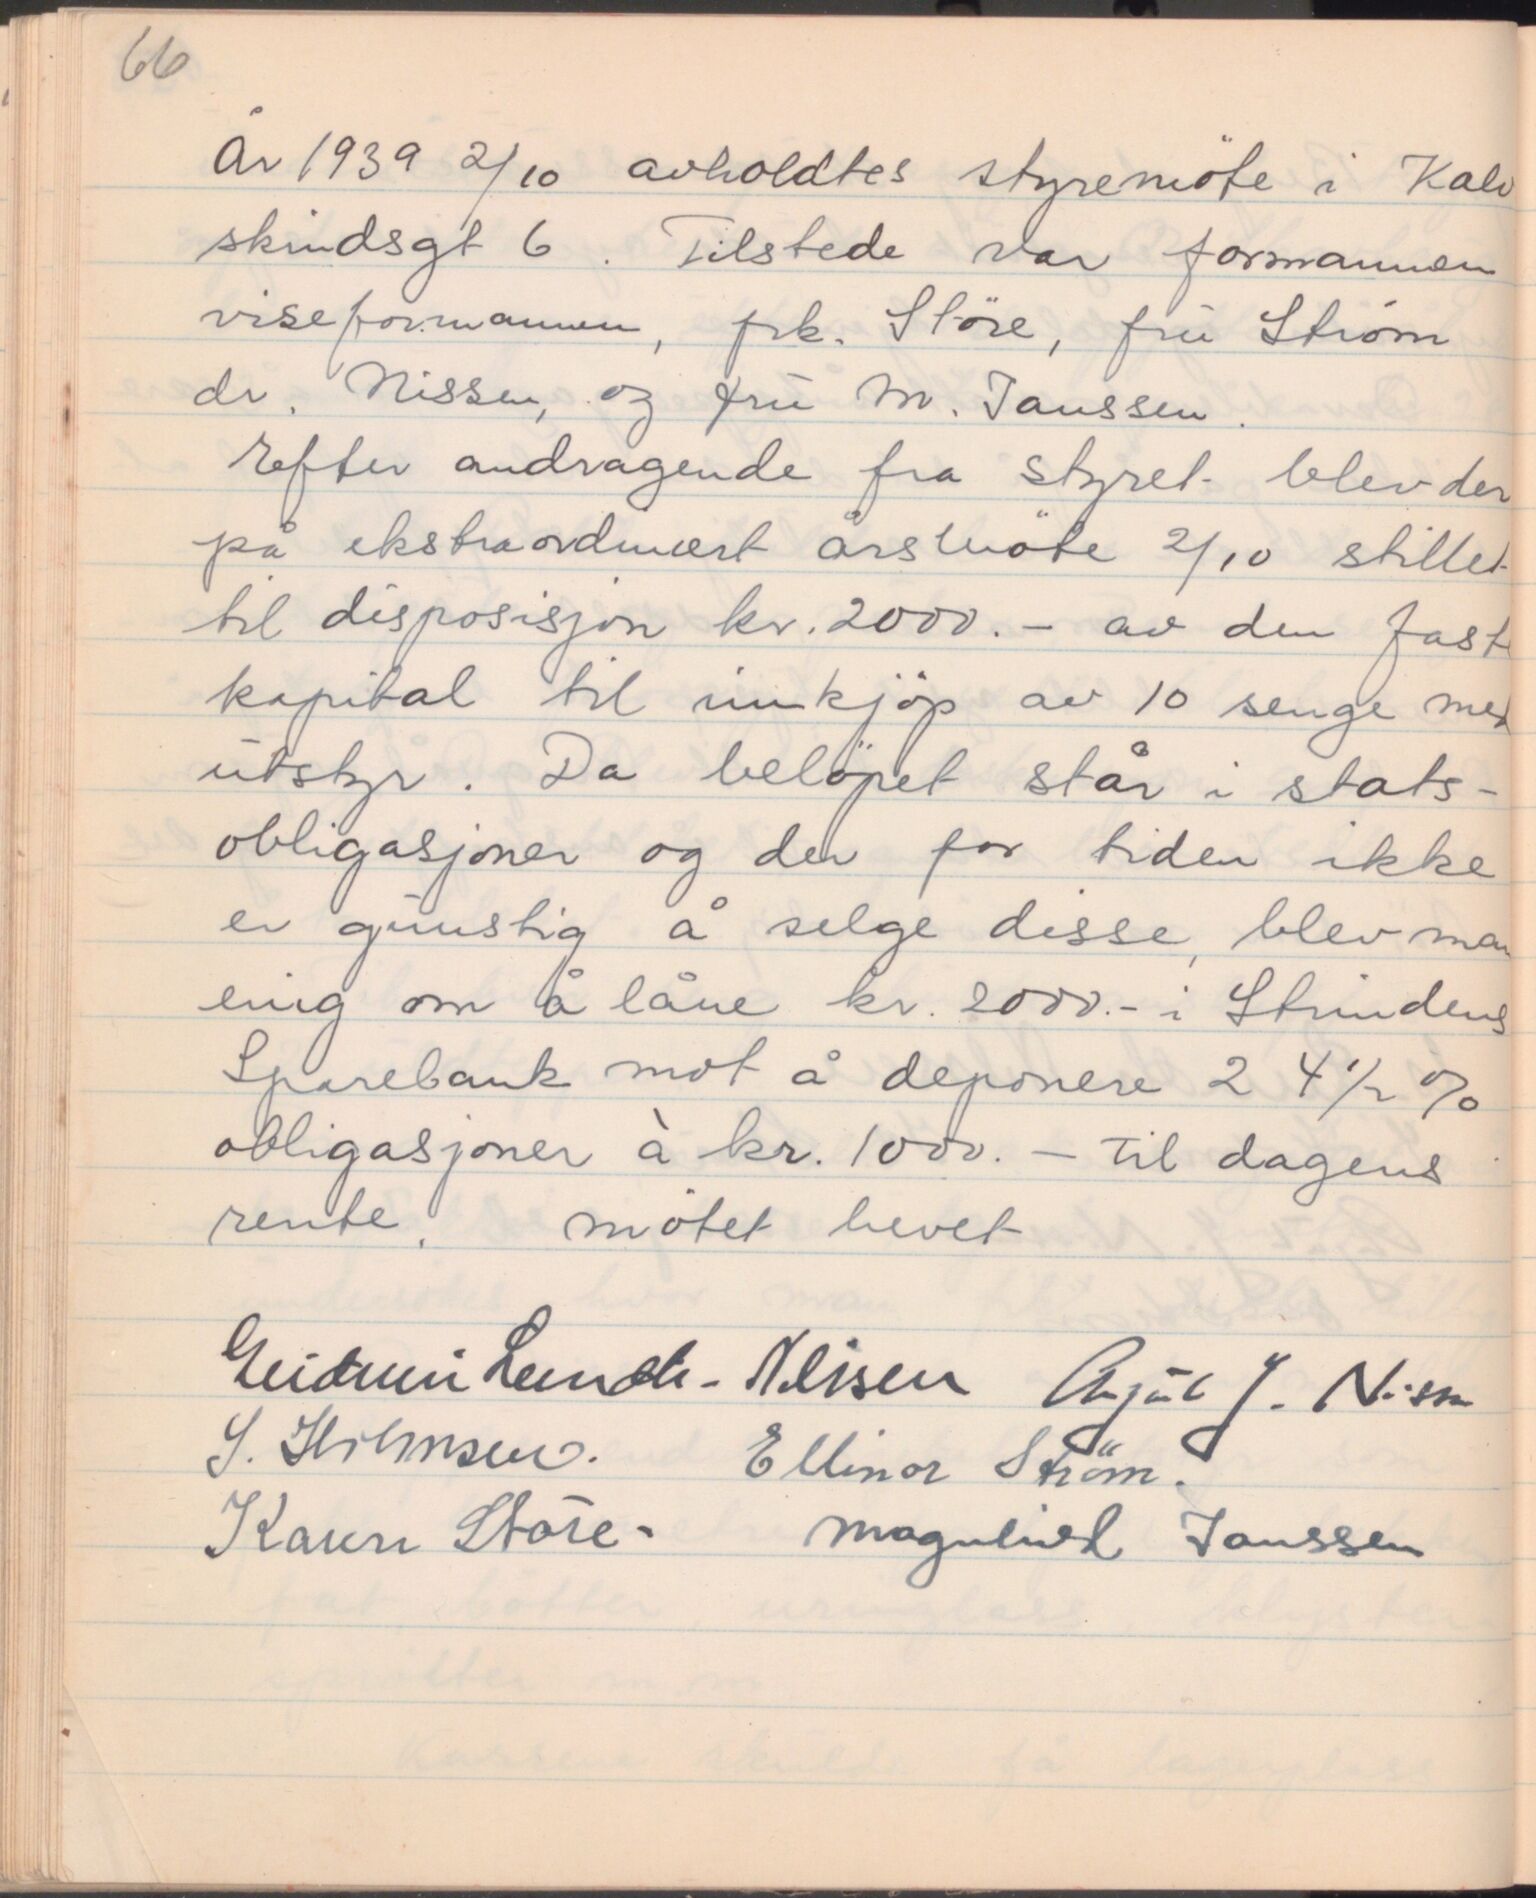 66
År 1939 2/10 avholdtes styremöte i Kalv
skindsgt 6. Tilstede var formannen
viseformannen, frk. Störe, fru Ström
dr. Nissen, og fru M. Janssen.
Efter andragende fra styret blev der
på ekstraordinært årsmöte 2/10 stillet
til disposisjon kr. 2000.- av den fast
kapital til innkjöp av 10 senge med
utstyr. Da belöpet står i stats-
obligasjoner og der for tiden ikke
er gunstig å selge disse, blev man
enig om å låne kr. 2000.- i Strindens
Sparebank mot å deponere 2 4 1/2 %
obligasjoner à kr. 1000.- til dagens
rente. Mötet hevet
Gudrun Lunde-Nilsen J. Nissen
S. Ellinor Ström.
Karen Störe. Magnhild Janssen